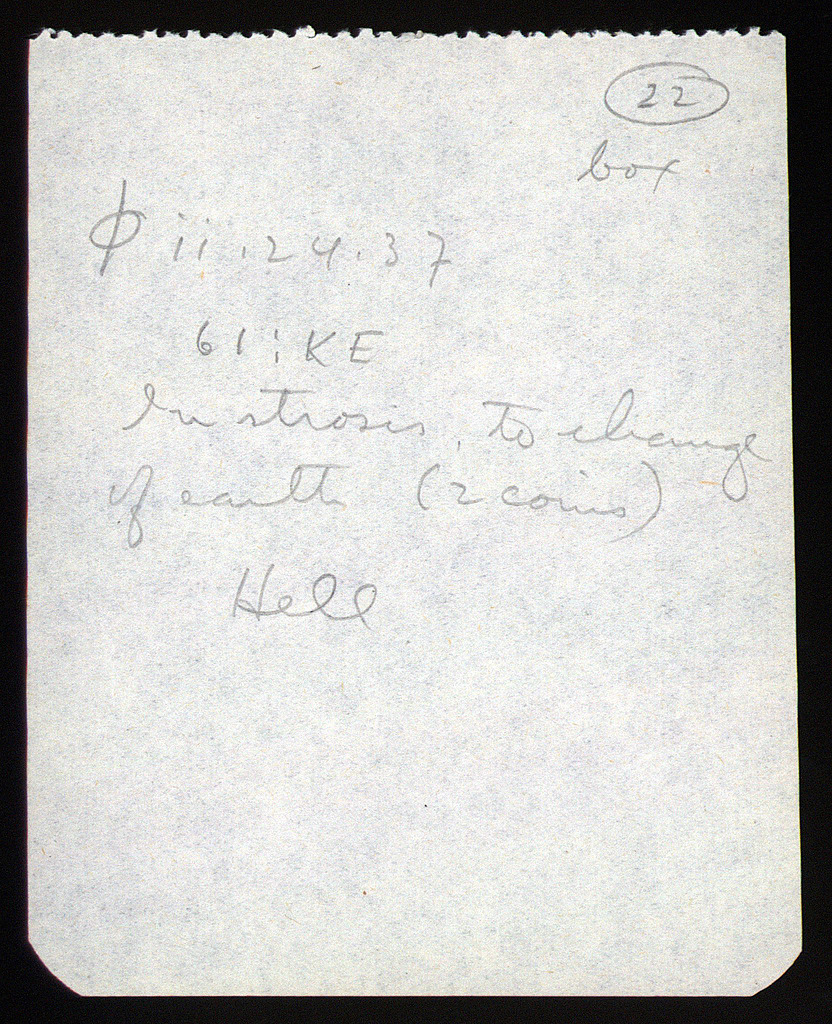 22
box
ϕ ii.24.37
61:KE
In strosis, to change
of earth (2 coins)
Hell